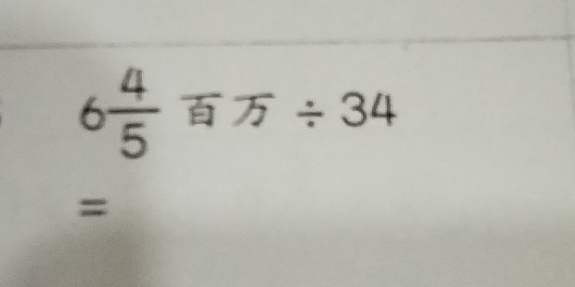 6 4/5 百万 ÷ 34
=